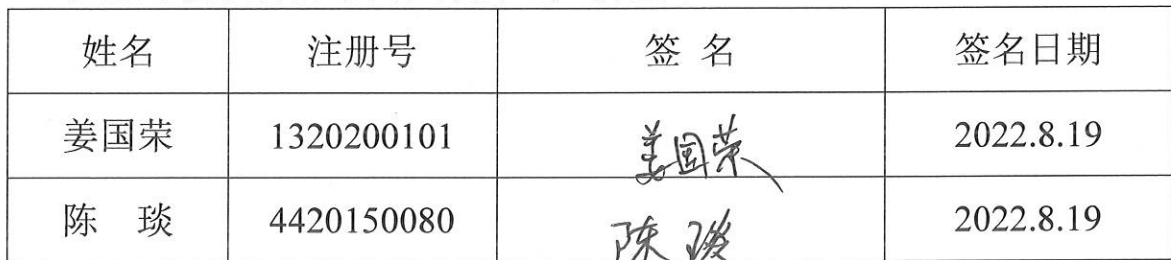 姓名 注册号 签 名 签名日期
姜国荣 1320200101 姜国荣 2022.8.19
陈 琰 4420150080 陈琰 2022.8.19